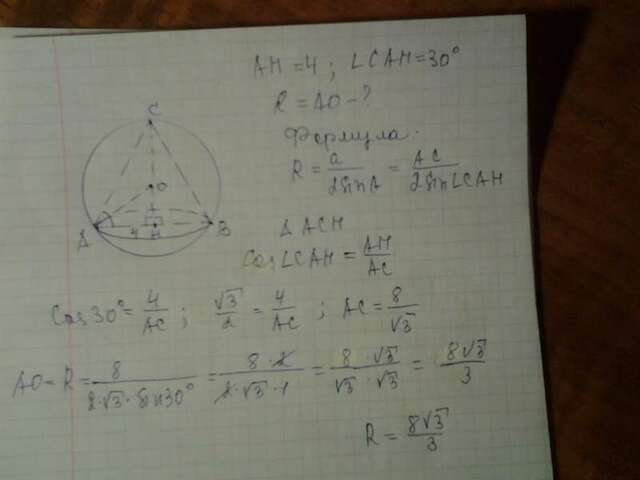 AH = 4 ; ∠CAH = 30°
R = AO - ?
Формула:
R = a/2SinA = AC/2Sin∠CAH
C
O
A 4 H B
Δ ACH
Cos∠CAH = AH/AC
Cos30° = 4/AC ; √3/2 = 4/AC ; AC = 8/√3
AO = R = 8/2·√3·Sin30° = 8·2/2·√3·1 = 8·√3/√3·√3 = 8√3/3
R = 8√3/3